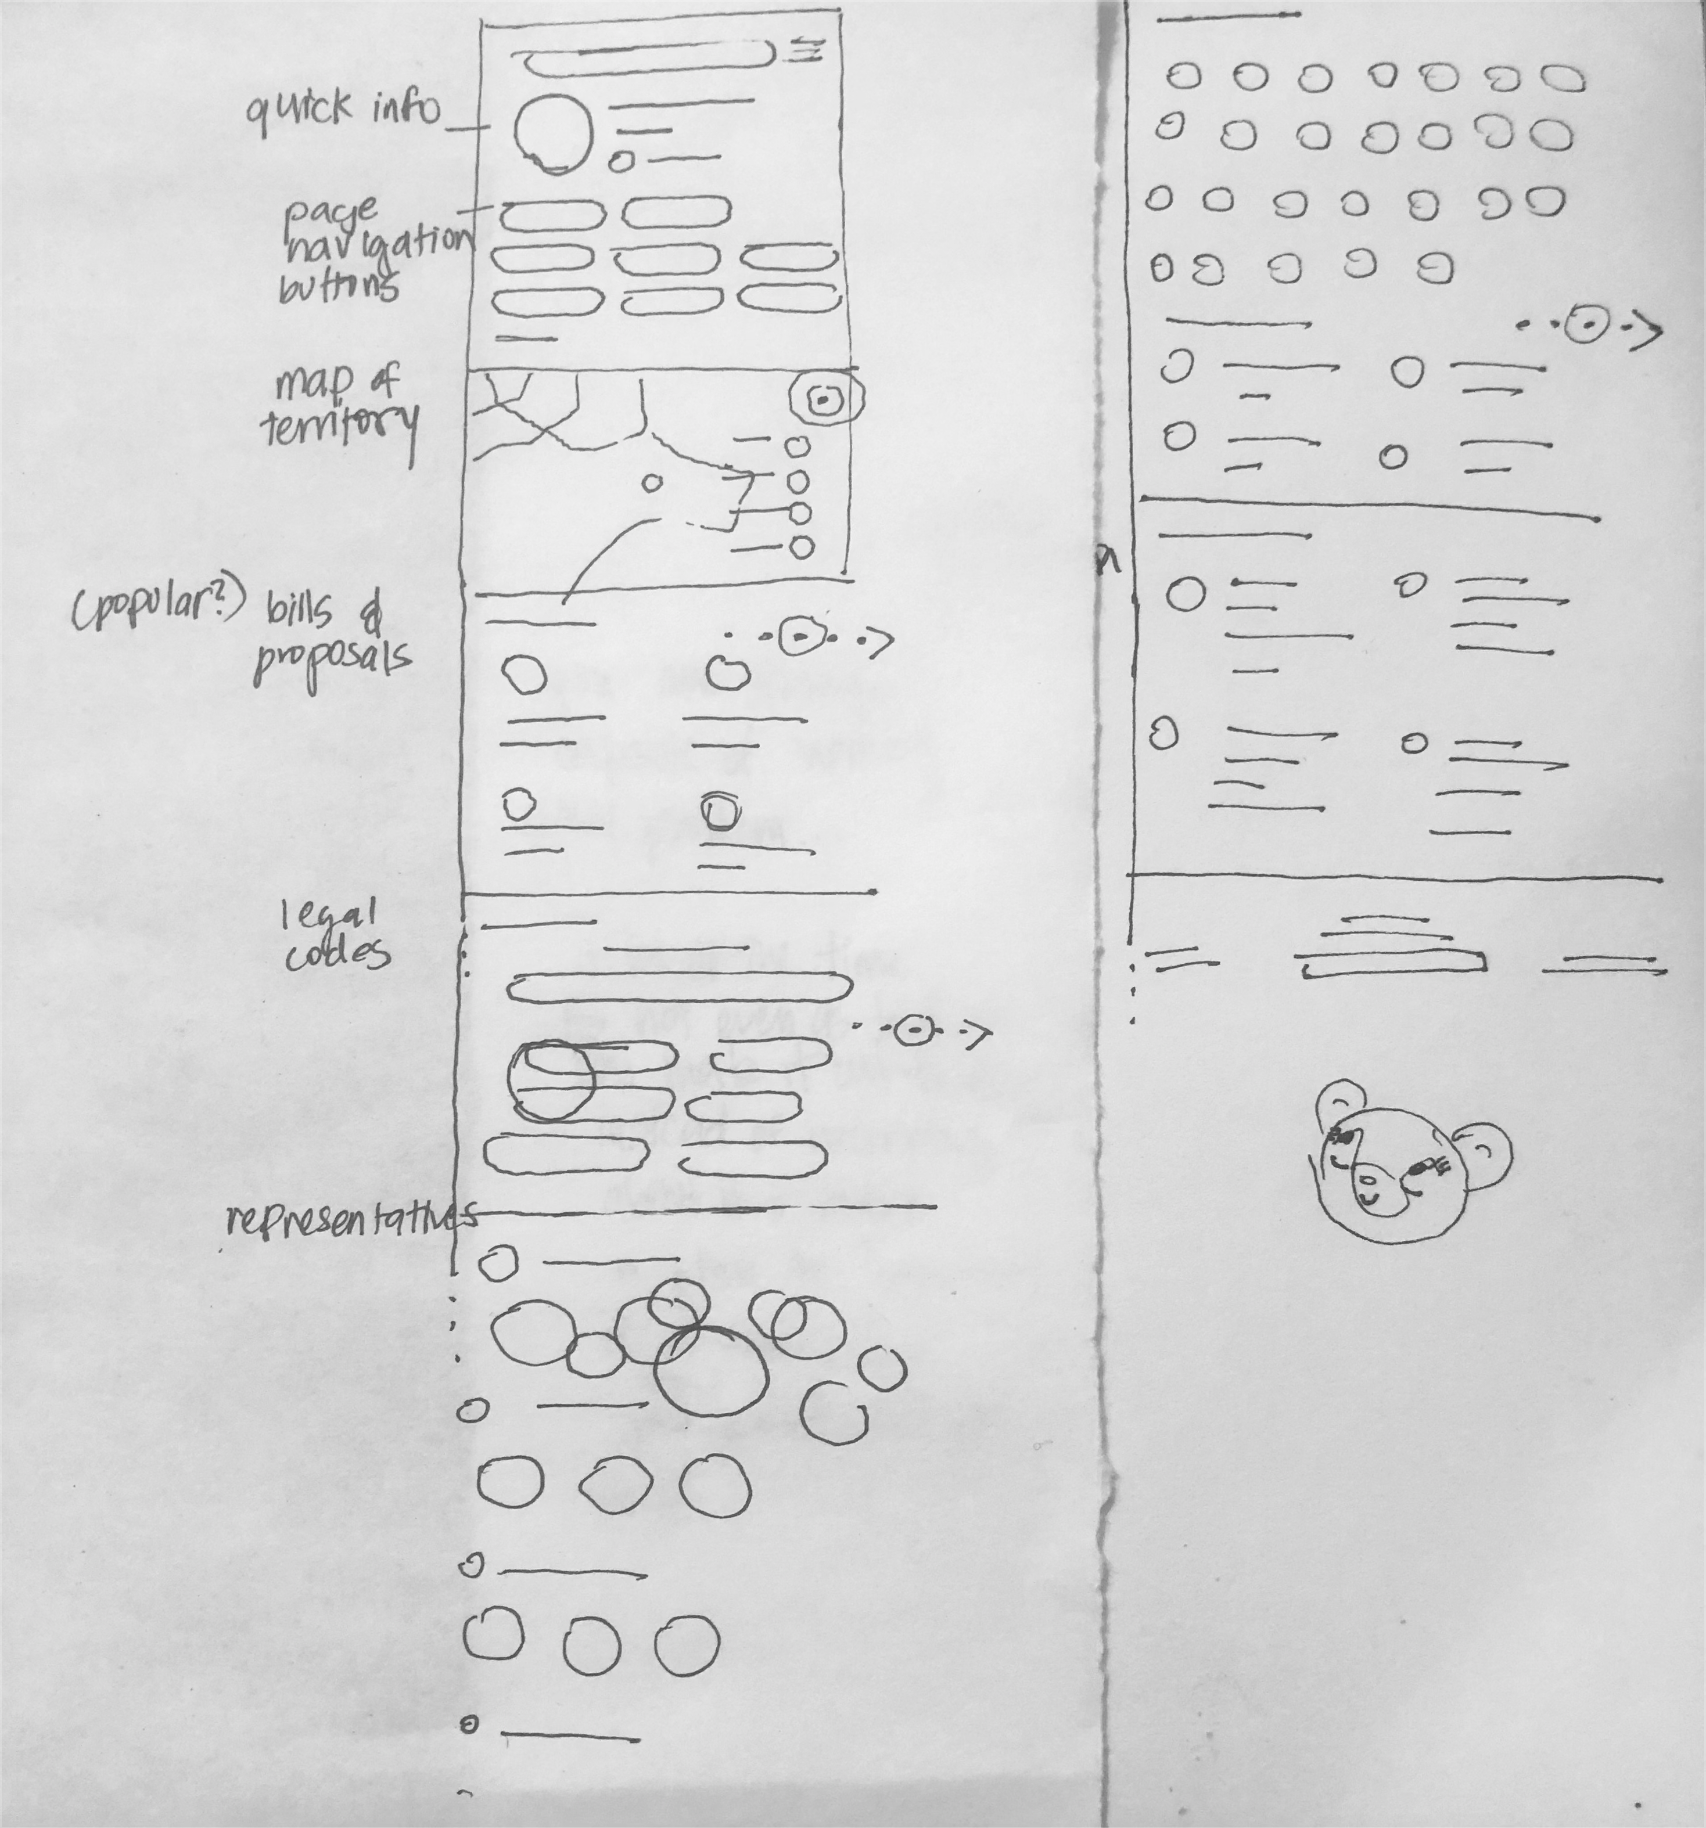 quick info
page
navigation
buttons
map of
territory
(popular?) bills &
proposals
legal
codes
representatives